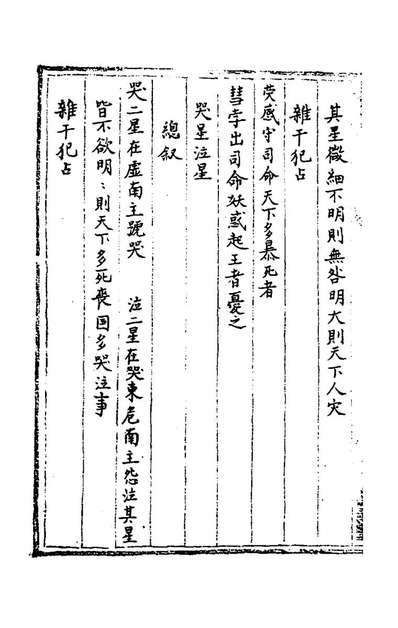 其星微細不明則無咎明大則天下人灾
雜干犯占
熒惑守司命天下多暴死者
彗孛出司命妖惑起王者憂之
哭星泣星
總叙
哭二星在虛南主號哭　泣二星在哭東危南主怨泣其星
皆不欲明〻則天下多死喪国多哭泣事
雜干犯占